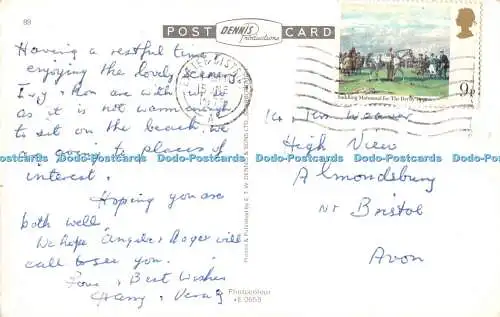 89
POST
DENNIS
Productions
CARD
Having a restful time
enjoying the lovely scenery
Ivy & Ron are with us but
as it is not warm enough
to sit on the beach, we
are going to places of
interest.
Hoping you are
both well.
We hope Angela & Roger will
call to see you.
Love & Best Wishes
Harry & Vera
Saddling Mahmoud for The Derby 1936
9p
Weaver
High View
Almondsbury
Nr Bristol
Avon
Photocolour
Dodo-Postcards Dodo-Postcards Dodo-Postcards Dodo-Postcards Dodo-Postcards